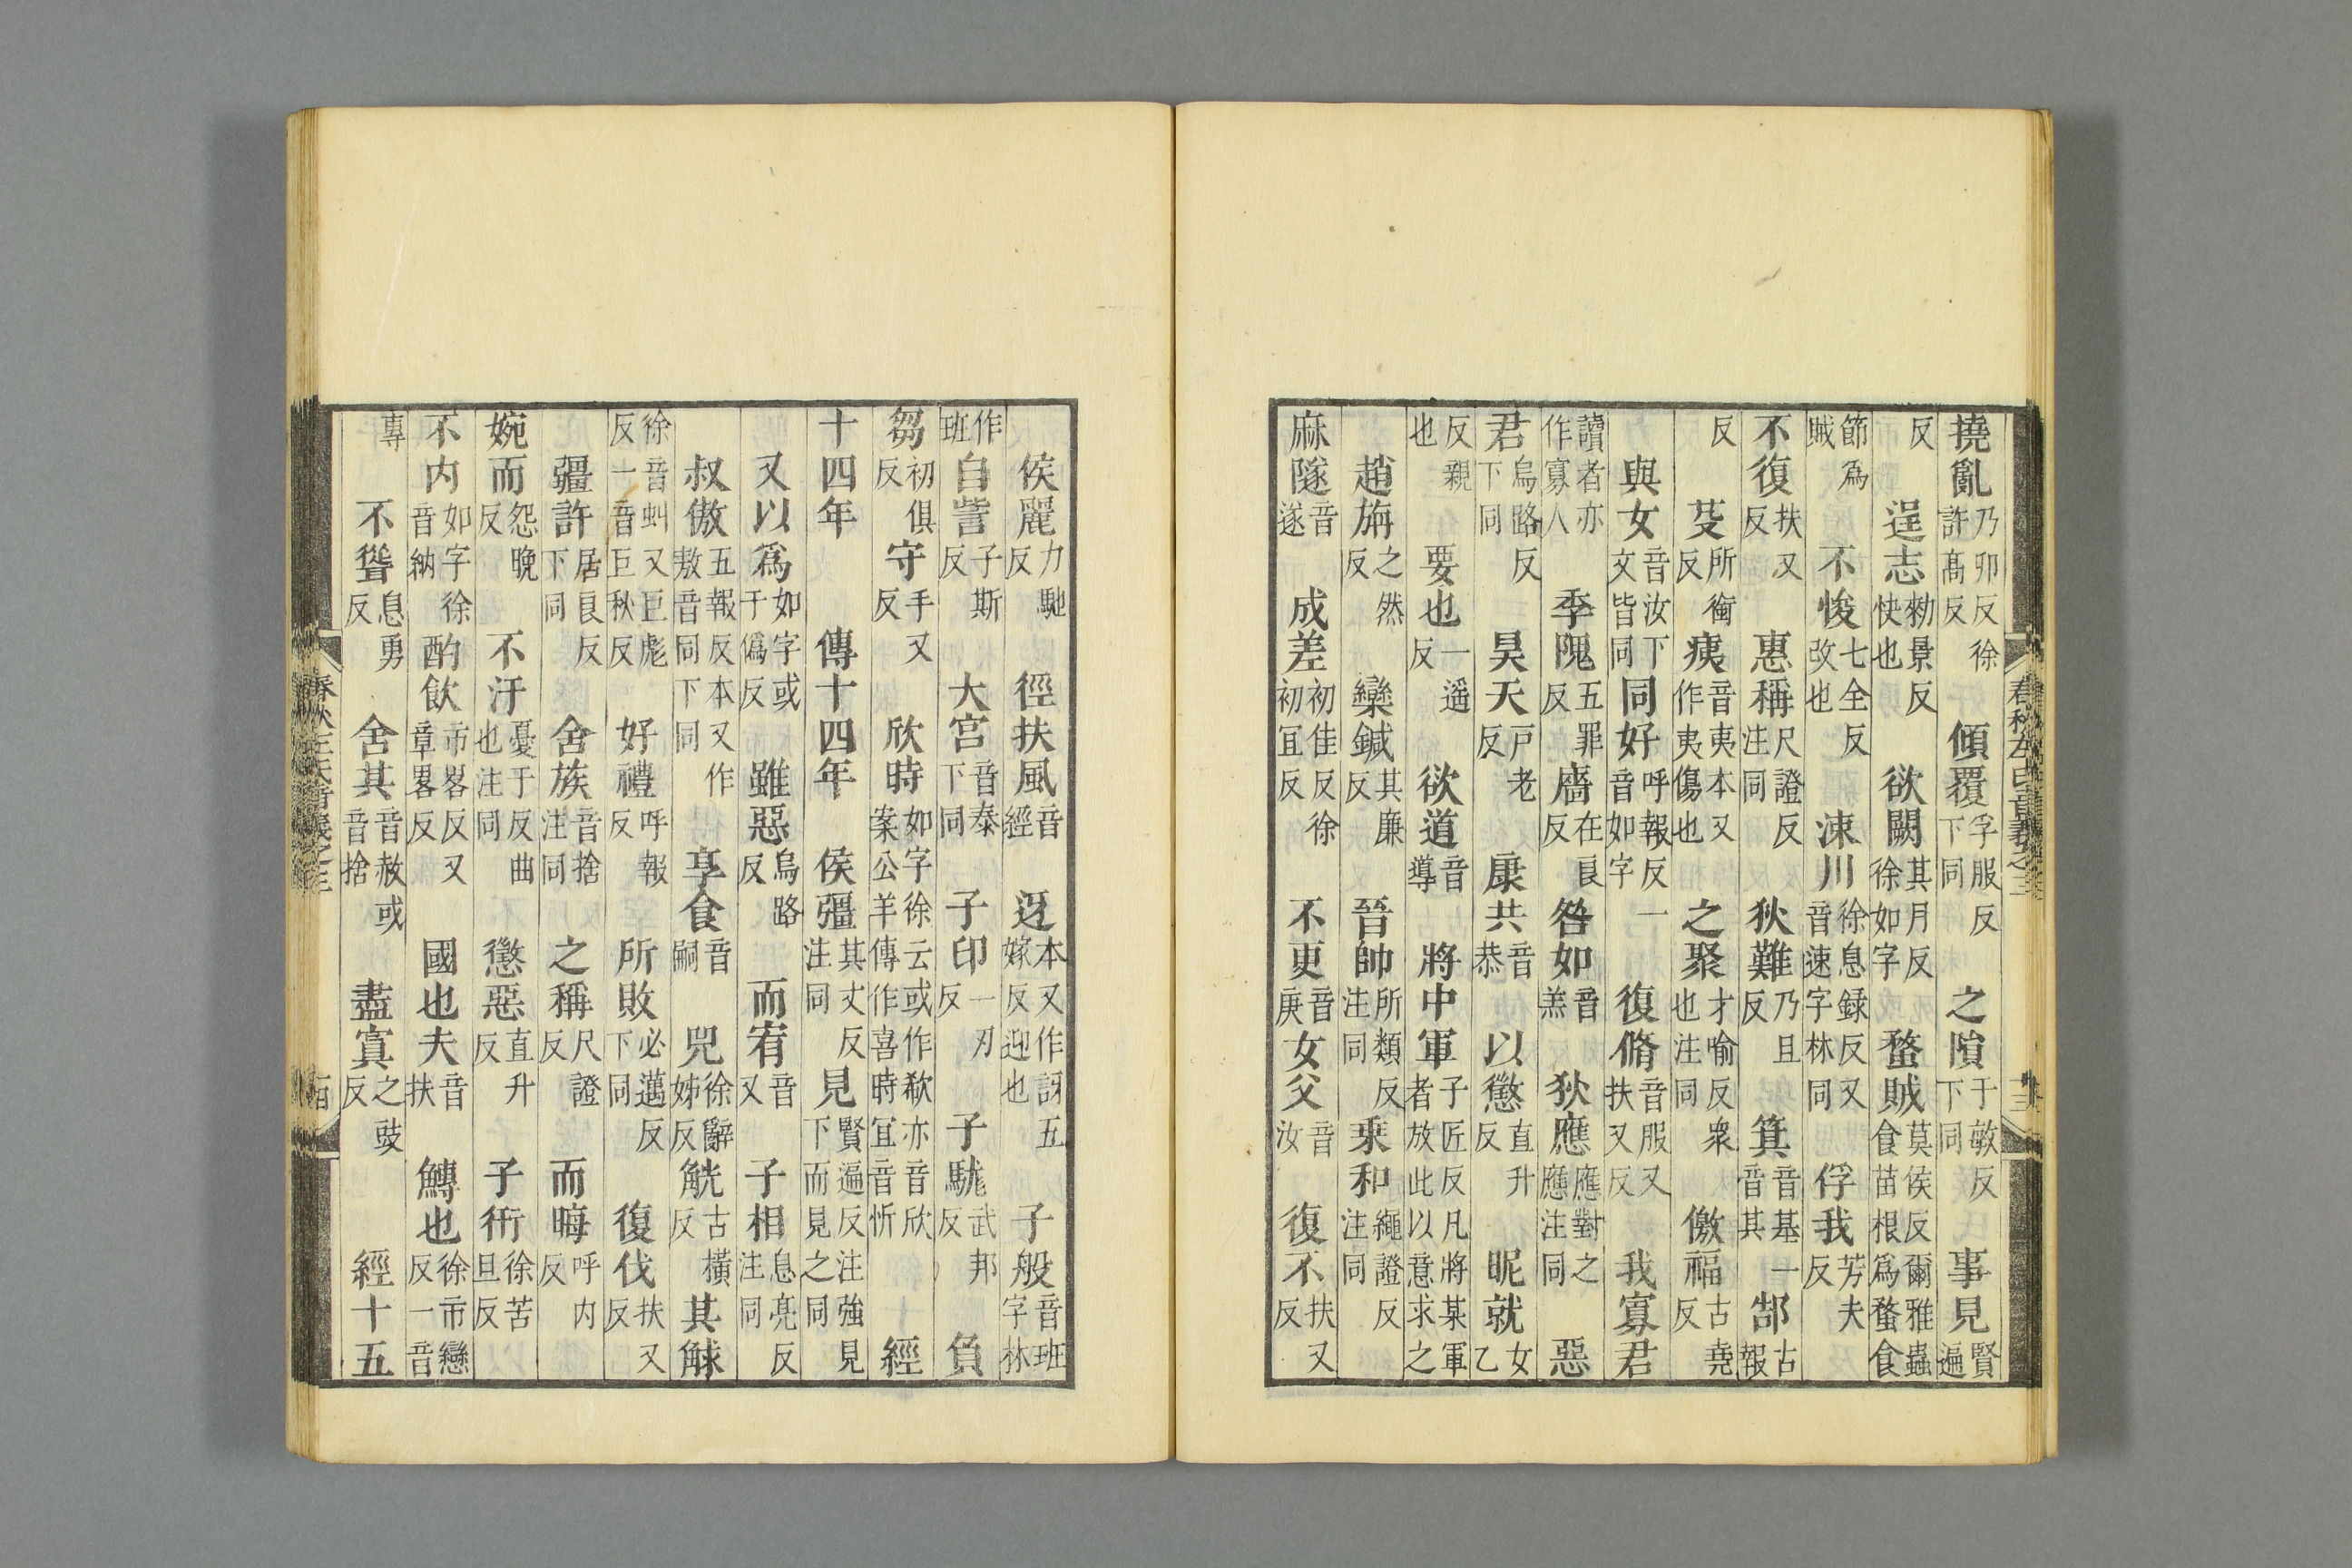 撓亂乃卯反徐許髙反 傾覆孚服反下同 之隕于敏反下同 事見賢遍
反 逞志勑景反快也 欲闕其月反徐如字或 蝥賊莫侯反爾雅蟲食苗根爲蝥食
節爲賊 不悛七全反改也 涑川徐息録反又音速字林同 俘我芳夫反
不復扶又反 惠稱尺證反注同 狄難乃且反 箕音基一音其 郜古報
反 芟所銜反 痍音夷本又作夷傷也 之聚才喻反衆也注同 儌福古堯反
與女音汝下文皆同 同好呼報反一音如字 復脩音服又扶又反 我寡君
讀者亦作寡人 季隗五罪反 廧在良反 咎如音羔 狄應應對之應注同 惡
君烏路反下同 昊天戸老反 康共音恭 以懲直升反 昵就女乙
反親也 要也一遥反 欲道音導 將中軍子匠反凡將某軍者放此以意求之
趙旃之然反 欒鍼其廉反 晉帥所類反注同 乗和繩證反注同
麻隧音遂 成差初佳反徐初冝反 不更音庚 女父音汝 復不扶又反
侯麗力馳反 徑扶風音經 迓本又作訝五嫁反迎也 子般音班字林
作班 自訾子斯反 大宫音泰下同 子印一刃反 子駹武邦反 負
芻初俱反 守手又反 欣時如字徐云或作欷亦音欣案公羊傳作喜時冝音忻 經
十四年 傳十四年 侯彊其丈反注同 見賢遍反注強見下而見之同
又以爲如字或于僞反 雖惡烏路反 而宥音又 子相息亮反注同
叔傲五報反本又作敖音同下同 享食音嗣 兕徐辭姊反 觥古橫反 其觩
徐音虯又巨彪反一音巨秋反 好禮呼報反 所敗必邁反下同 復伐扶又反
疆許居良反下同 舍族音捨注同 之稱尺證反 而晦呼内反
婉而怨晚反 不汙憂于反曲也注同 懲惡直升反 子衎徐苦旦反
不内如字徐音納 酌飲市畧反又章畧反 國也夫音扶 鱄也徐市戀反一音
專 不聳息勇反 舍其音赦或音捨 盡寘之豉反 經十五